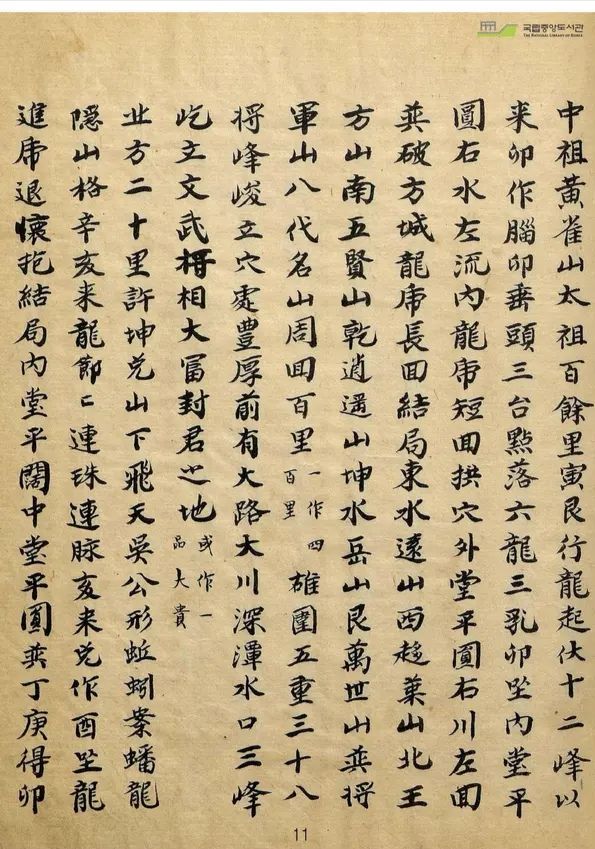 국립중앙도서관
THE NATIONAL LIBRARY OF KOREA
中祖黃雀山太祖百餘里寅艮行龍起伏十二峰以
来卯作腦卯垂頭三台點落六龍三乳卯坐內堂平
圓右水左流內龍席短回拱穴外堂平圓右川左回
巽破方城龍席長回結局東水遠山西趍葉山北王
方山南五賢山乾逍遥山坤水岳山艮萬世山巽将
軍山八代名山周回百里一作四百里雄圍五重三十八
将峰峻立穴處豊厚前有大路大川深潭水口三峰
屹立文武将相大冨封君之地或作一品大貴
北方二十里許坤兌山下飛天吳公形蚯蚓案蟠龍
隱山格辛亥来龍節〻連珠連脉亥来兌作酉坐龍
進席退懷抱結局內堂平闊中堂平圓巽丁庚得卯
11